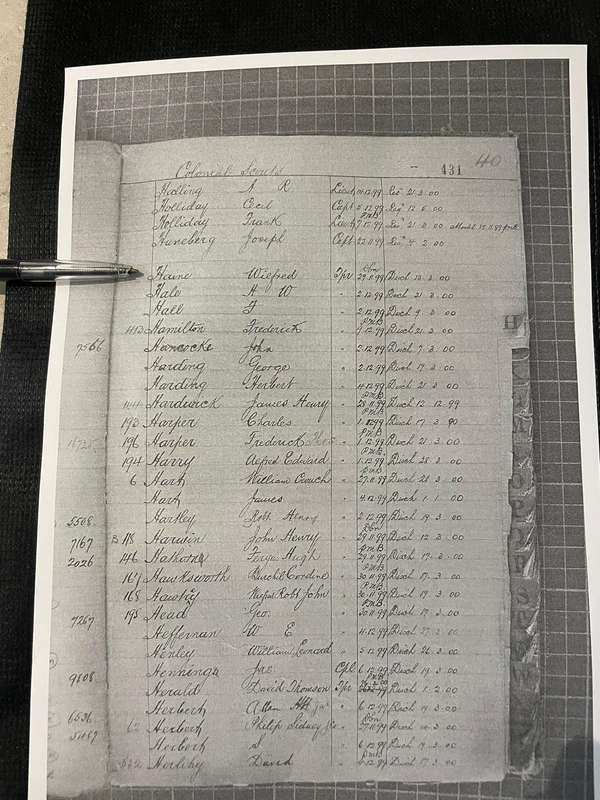 40
Colonial Scouts 431
Holliday Cecil Capt 12.99 6.00
Holliday Frank Lieut P.M.B. 12.99 Res 21.2.00
Huneberg Joseph Capt 22.11.99 Res 4.2.00
Haine Wilfred Tpr Dbn 29.11.99 Disch 13.3.00
Hale H W " 2.12.99 Disch 21.3.00
Hall F " 2.12.99 Disch 9.3.00
Hamilton Frederick " P.M.B. 12.99 Disch 21.3.00
7566 Hancocke John " 2.12.99 Disch 7.3.00
Harding George " 2.12.99 Disch 17.3.00
H
Harding Herbert " 4.12.99 Disch 21.3.00
Hardwick James Henry " P.M.B. 28.11.99 Disch 12.12.99
193 Harper Charles " P.M.B. 1.12.99 Disch 17.3.00
196 Harper Frederick " P.M.B. 1.12.99 Disch 21.3.00
194 Harry Alfred Edward " P.M.B. 1.12.99 Disch 28.3.00
6 Hart William Crouch " P.M.B. 27.11.99 Disch 28.3.00
Hart James " 4.12.99 Disch 1.1.00
5508 Hartley Robt Henry " 2.12.99 Disch 19.3.00
7167 John Henry " Dbn 29.11.99 Disch 12.3.00
2026 146 Hugh " P.M.B. 29.11.99 Disch 17.3.00
167 Hawksworth " P.M.B. 30.11.99 Disch 17.3.00
168 Robt John " P.M.B. 30.11.99 Disch 19.3.00
7267 195 Head Geo. " P.M.B. 30.11.99 Disch 17.3.00
Heffernan W E " 4.12.99 Disch 3.00
Henley William Leonard " 5.12.99 Disch 26.3.00
9808 Hennings Jas. Cpl 6.12.99 Disch 19.3.00
Herald David Thomson Tpr P.M.B. Disch 1.2.00
6536 Herbert Allan " 6.12.99 Disch 19.3.00
Herbert Philip Sidney " Dbn 27.11.99 Disch 3.00
Herbert S " 6.12.99 Disch 19.3.00
Herlihy David " P.M.B. 12.99 Disch 17.3.00